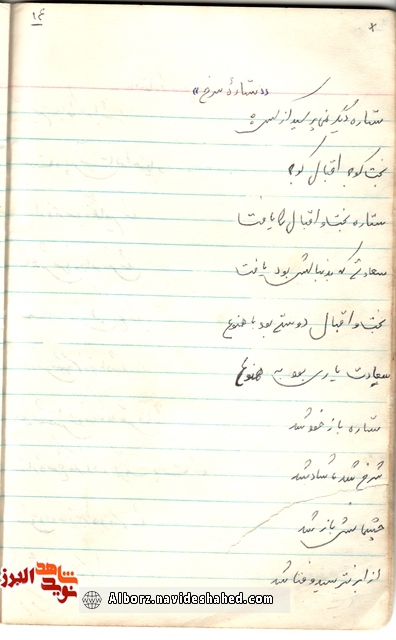 ۱۴
«ستارهٔ سرخ»
ستاره دیگر نمی‌پرسید از کسی
بخت کو، اقبال کو
ستاره بخت و اقبال را یافت
سعادتی که بدنبالش بود یافت
بخت و اقبال دوستی بود با
سعادت یاری بود به
ستاره باز خود شد
سرخ شد، شاد شد
چشمانش باز شد
از ابر نترسید و فنا شد
نوید شاهد البرز
Alborz.navideshahed.com